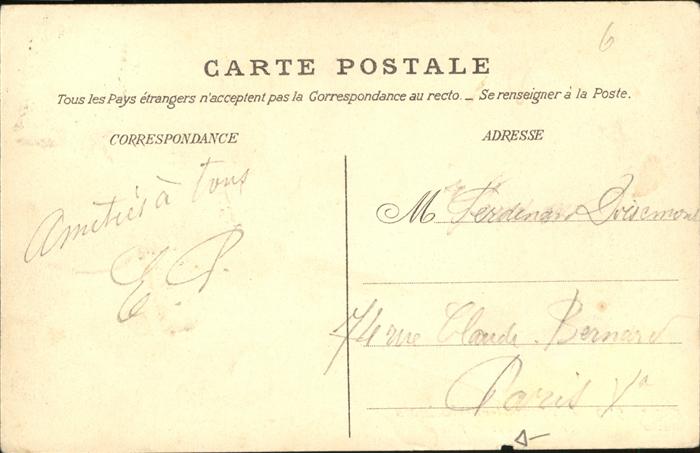 6
CARTE POSTALE
Tous les Pays étrangers n'acceptent pas la Correspondance au recto. _ Se renseigner à la Poste.
CORRESPONDANCE
ADRESSE
Amitiés à tous
E. P.
M Ferdinand
74 rue Claude Bernard
Paris Va